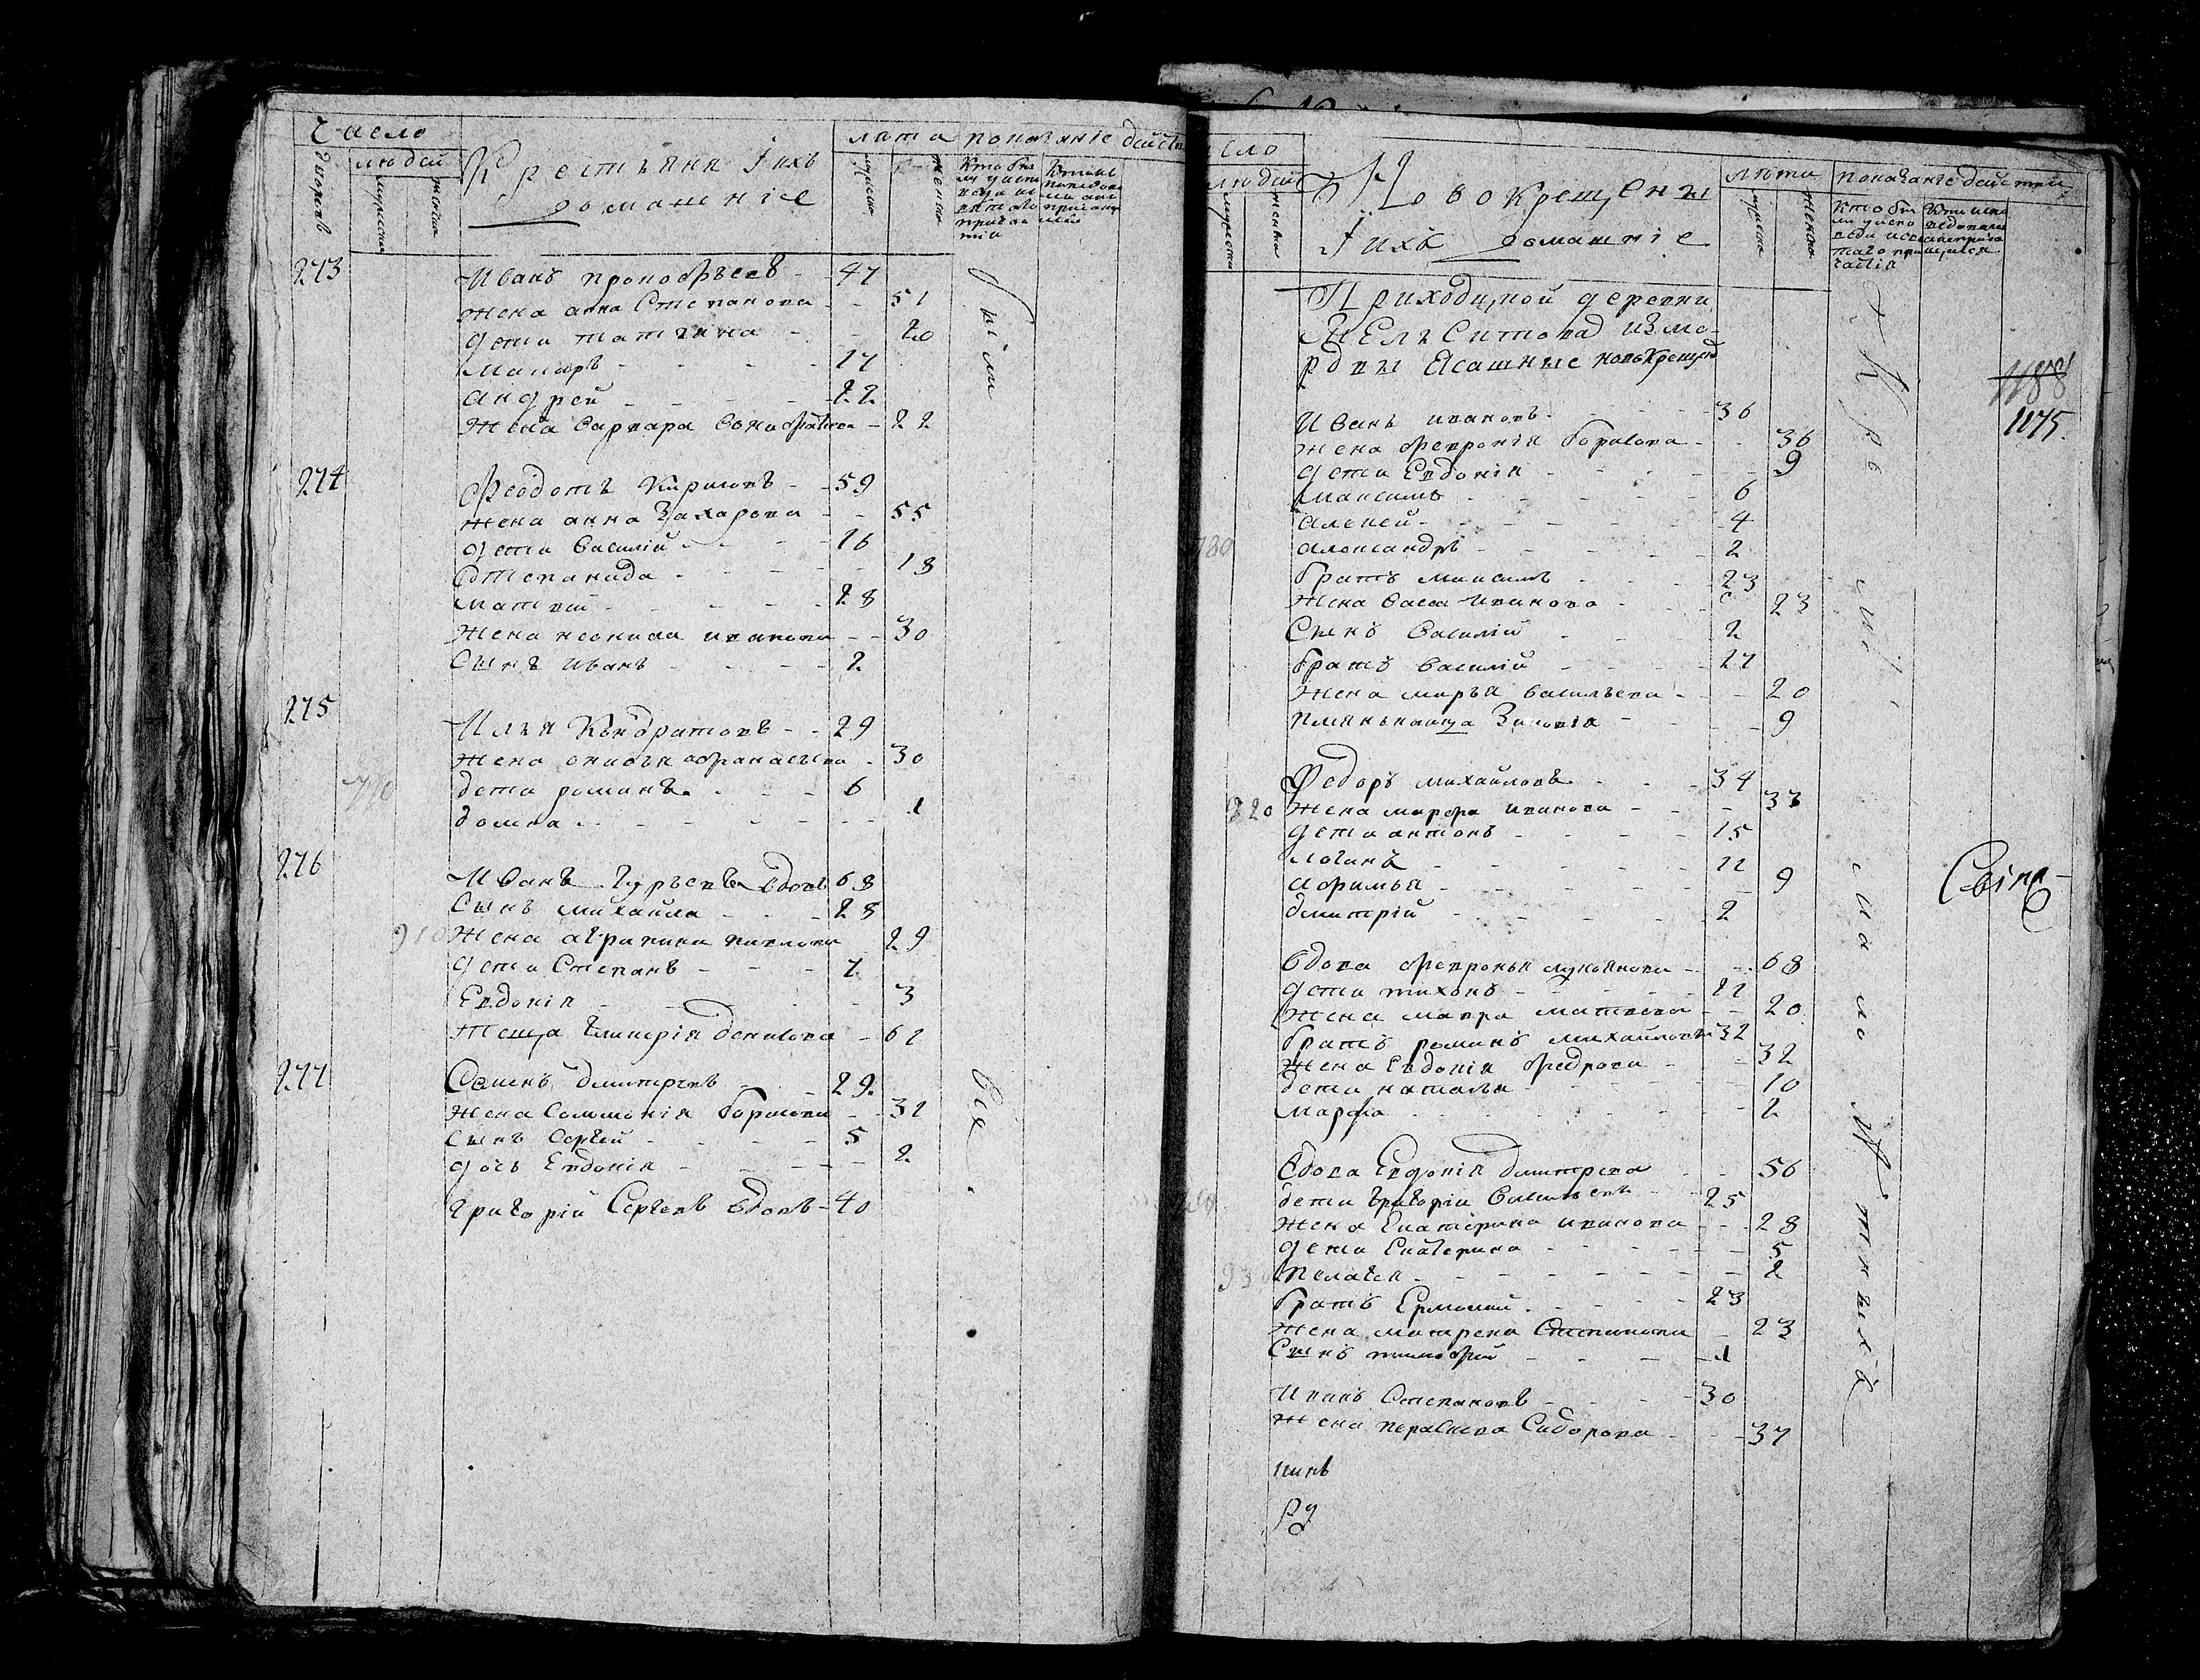 число
людей
дворовъ
мужска
женска
Крестьяня Iихъ
домашнiе
лѣта
мужска
женска
показанiе дѣйств
273
Иванъ прокофьевъ - 47
жена анна Степанова - - 51
дети татияна - - 20
Макаръ - - - - 17
андрей - - - - 22
жена варвара - 22
274
Феодотъ Кириловъ - - 59
жена анна Захарова - - 55
дети василiй - - - - 16
Степанида - - - - 18
матвей - - - - 28
жена неонила иванова - - 30
Сынъ иванъ - - - - 2
275
Илья Кондратовъ - - 29
жена анисья афанасьева - 30
дети романъ - - - 6
домна - - - - 1
276
Иванъ гурьевъ вдовъ 68
Сынъ михайла - - - 28
910
жена агрипина павлова 29
дети Степанъ - - - 7
Евдокiя - - - 3
теща гликерiя денисова - 61
277
Семенъ дмитрiевъ - 29.
жена Соломонiя борисова - - 31
Сынъ Сергей - - - - 5
дочь Евдокiя - - - - 2
григорiй Сергевъ вдовъ - 40
были
вся
число
людей
мужска
женска
Новокрещены
Iихъ домашнiе
лѣта
мужска
женска
показанiе дѣйстви
Приходцкой деревни
Мелъситова из мо-
рдвы Ясашные новокрещен
1188
1175.
Иванъ ивановъ - - - - 36
жена февронiя борисова - - 36
дети Евдокiя - - - - 9
Максимъ - - - - 6
алексей - - - - 4
александръ - - - - 2
братъ максимъ - - - 23
жена васса иванова - - - 23
Сынъ василiй - - - 2
братъ василiй - - - 21
жена марья васильева - - - 20
племянъница Зиновiя - - - 9
Федоръ михайловъ - - - 34
820
жена марфа иванова - - - 33
дети антонъ - - - - 15
логинъ - - - - 11
афимья - - - - 9
дмитрiй - - - - 2
вдова февронья лукоянова - - 68
дети тихонъ - - - - 21
жена мавра матвеева - - 20
братъ романъ михайловъ 32
жена Евдокiя федрова - - 32
дети наталья - - - 10
марфа - - - - 2
вдова Евдокiя дмитрева - - 56
дети григорiи васильевъ - - 25
жена Екатерина иванова - - - 28
дети Екатерина - - - - 5
пелагея - - - - 2
братъ Ермолай - - - 23
жена матрена Степанова - 23
Сынъ тимофей - - - - 1
Иванъ Степановъ - - - 30
жена параскева Сидорова - - - 37